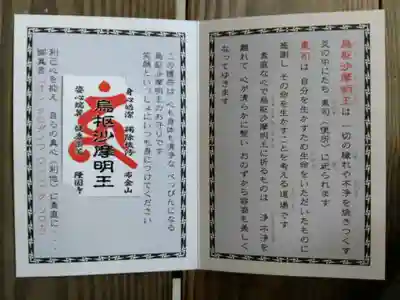 烏枢沙摩明王は 一切の穢れや不浄を焼きつくす
炎の中にたち 東司(便所)に祀られます
東司は 自分を生かすため生命をいただいたものに
感謝し その命を生かすことを考える道場です
素直な心で烏枢沙摩明王に祈るものは 浄 不浄を
離れて 心が清らかに整い おのずから容姿も美しく
なってゆきます
この護符は 心も身体も清浄な べっぴんになる
烏枢沙摩明王のお守りです
笑顔といっしょにいつも身につけてください
身心皓潔
烏枢沙摩明王
利己心を抑え 自らの真心(利他)に素直に・・・
御真言